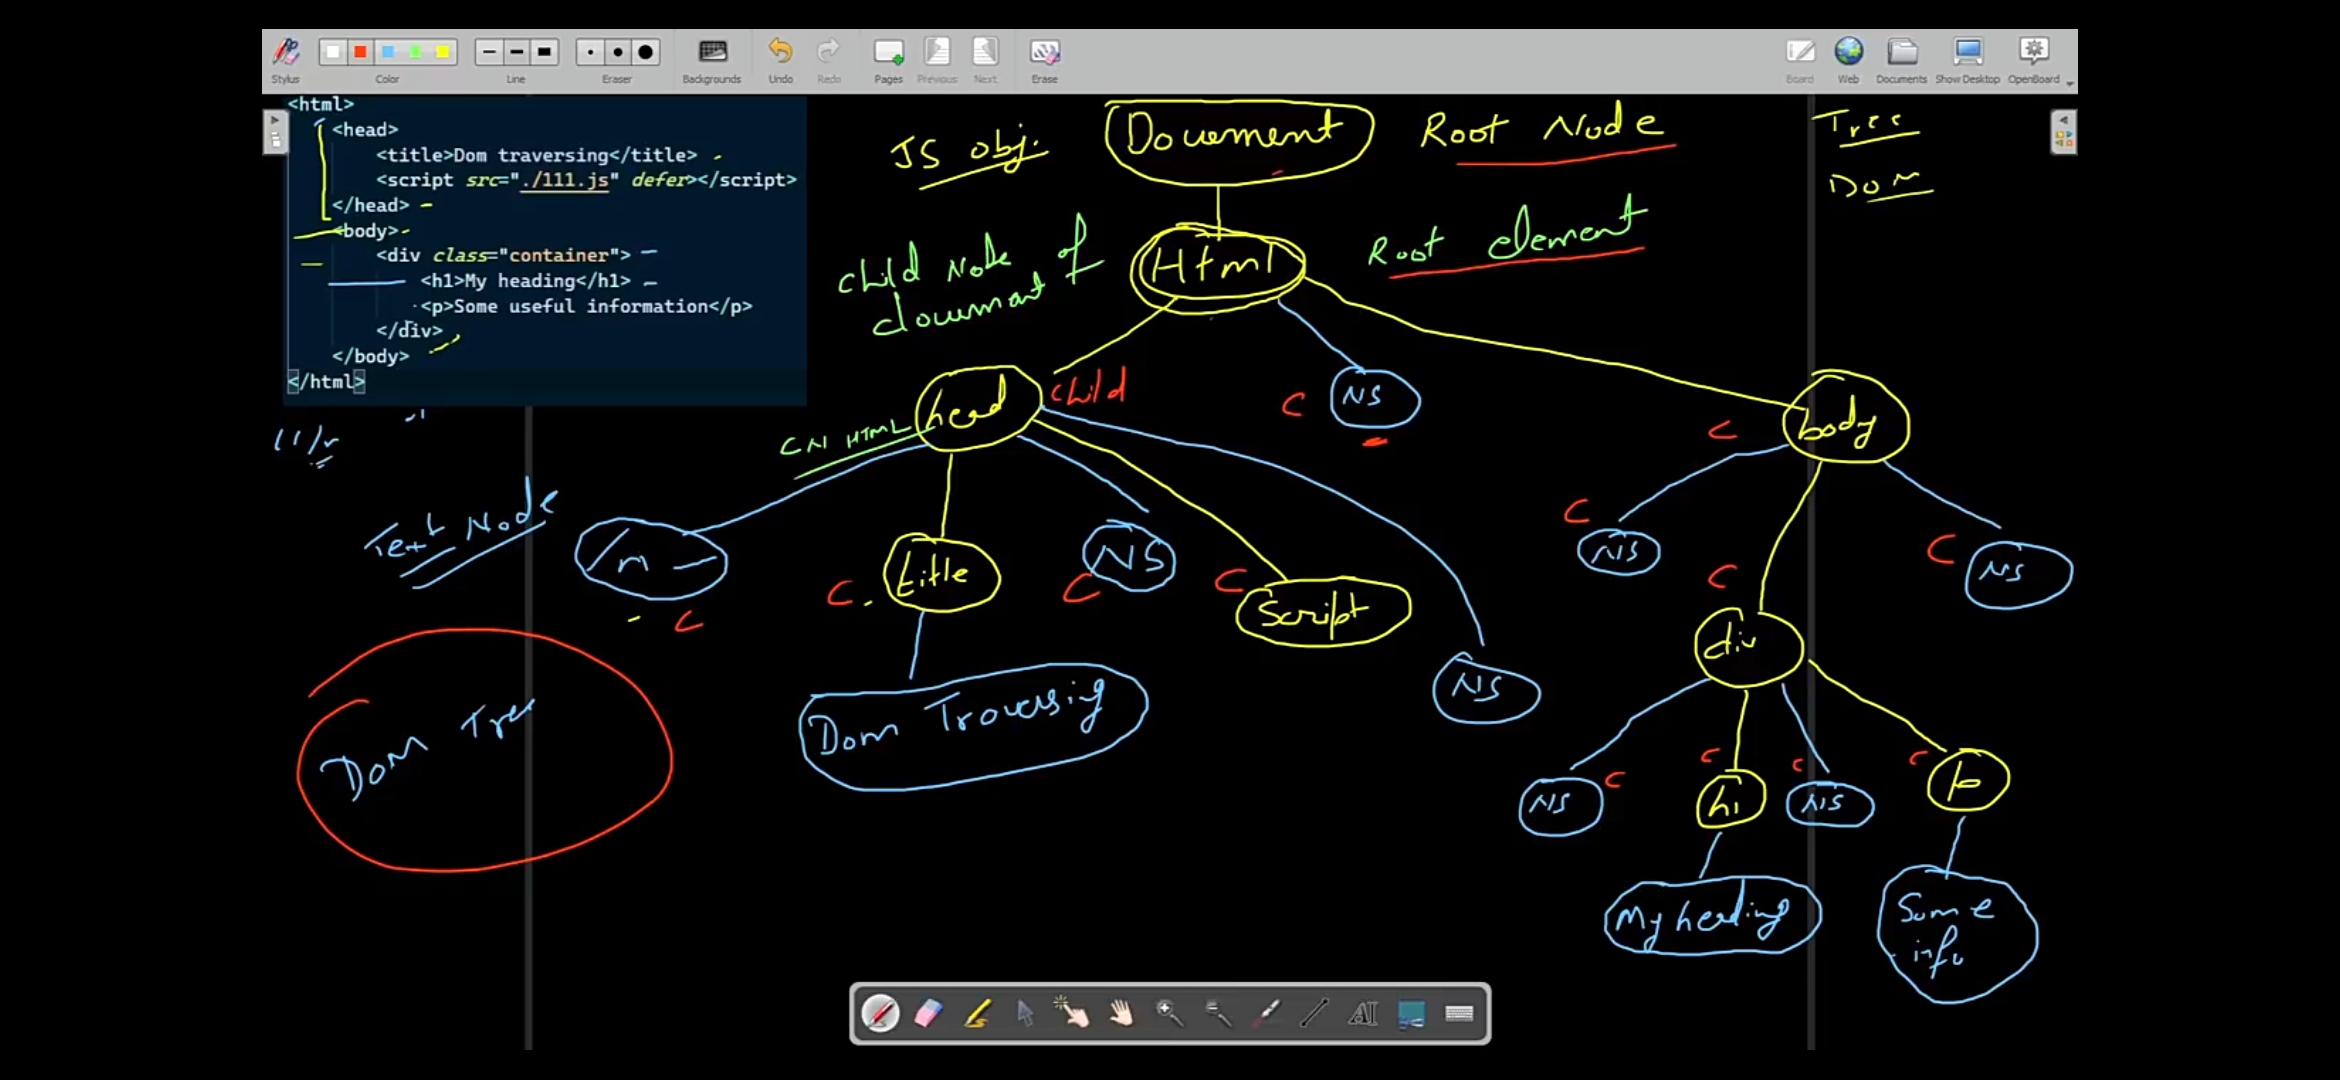 Stylus
Color
Line
Eraser
Backgrounds
Undo
Redo
Pages
Previous
Next
Erase
Board
Web
Documents
Show Desktop
OpenBoard
<html>
<head>
<title>Dom traversing</title>
<script src="./111.js" defer></script>
</head>
<body>
<div class="container">
<h1>My heading</h1>
<p>Some useful information</p>
</div>
</body>
</html>
JS obj.
Document
Root Node
Tree
DOM
Child Node of
document
Html
Root element
head
Child
C
NS
C
body
CN HTML
Text Node
/n —
C
C
title
C
NS
C
Script
NS
C
NS
C
NS
C
div
Dom Tree
Dom Traversing
NS
C
C
h1
C
NS
C
p
My heading
Some
info
AI